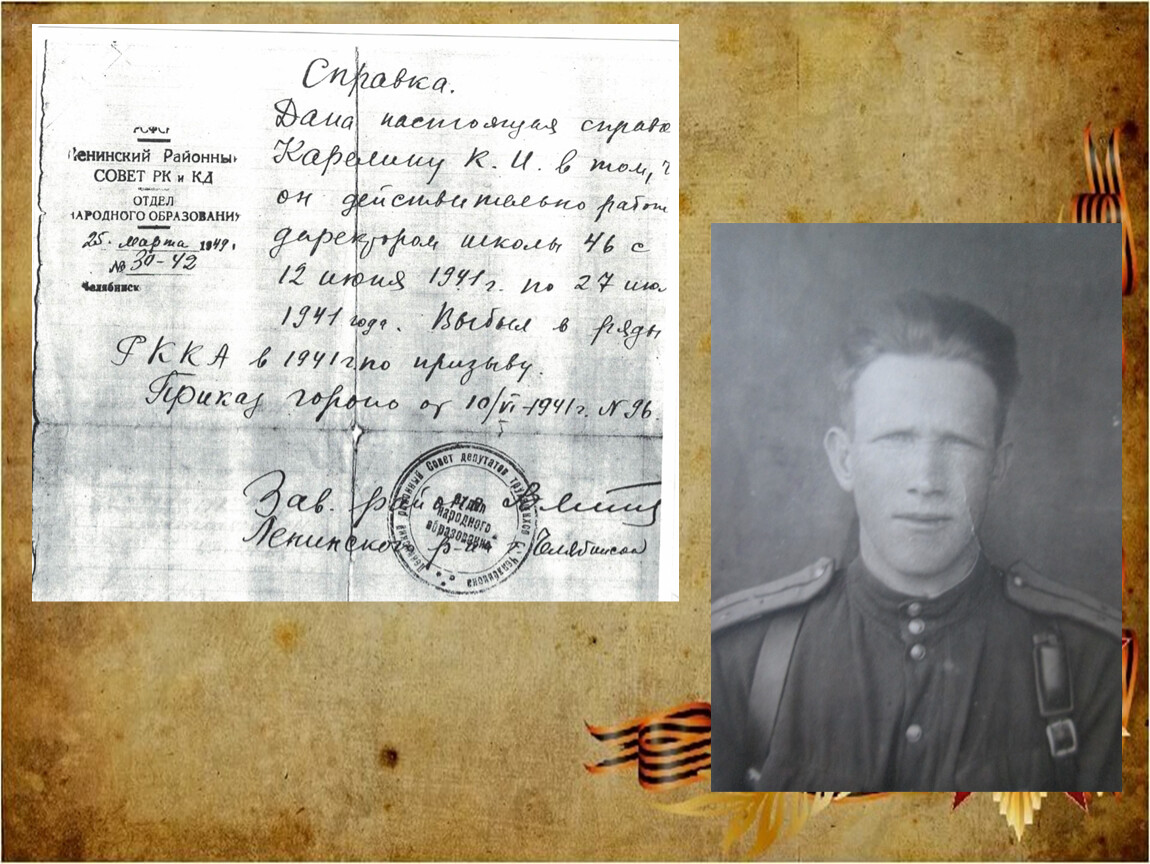 Справка.
Дана настоящая справк
Карелину К. И. в том, ч
он действительно работ
директором школы 46 с
12 июня 1941г. по 27 июл
1941 года. Выбыл в ряды
РККА в 1941г по призыву.
Приказ гороно от 10/VI-1941г. N 96.
РСФСР
Ленинский Районны
СОВЕТ РК и КД
ОТДЕЛ
НАРОДНОГО ОБРАЗОВАНИ
25. марта 1949
№ 30-42
Челябинск
Зав. рай
Ленинского р-на г. Челябинска
районный Совет депутатов трудящихся г. Челябинска
отдел
народного
образования